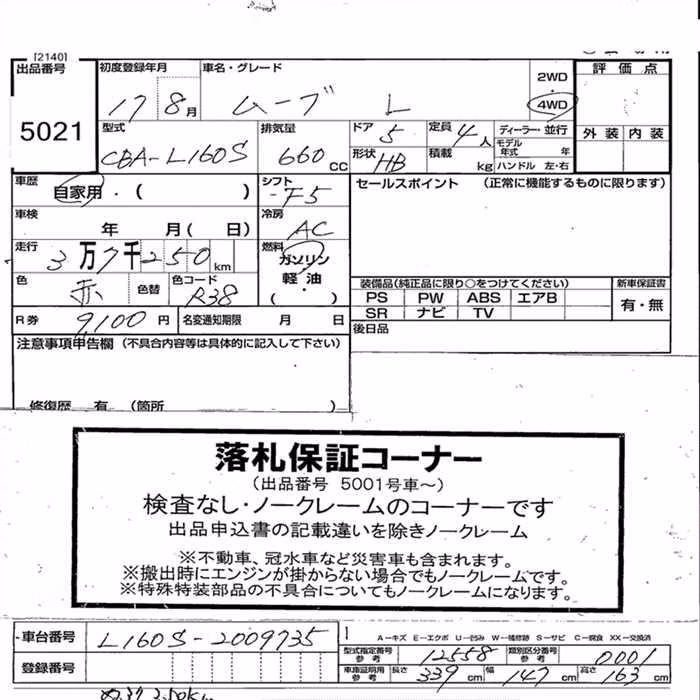 [2140]
出品番号
5021
初度登録年月
17 8月
車名・グレード
ムーブ L
2WD
4WD
評価点
外装 内装
型式
CBA-L160S
排気量
660 CC
ドア 5
定員 4人
形状 HB
積載 kg
ディーラー・並行
モデル年式 年
ハンドル 左・右
車歴
自家用・( )
シフト
F5
セールスポイント (正常に機能するものに限ります)
車検
年 月( 日)
冷房
AC
走行
3万7千250km
燃料
ガソリン
・
軽油
( )
色
赤
色替
色コード
R38
装備品(純正品に限り○をつけてください)
PS PW ABS エアB
SR ナビ TV
新車保証書
有・無
R券 9,100円
名変通知期限 月 日
後日品
注意事項申告欄 (不具合内容等は具体的に記入して下さい)
修復歴 有 (箇所 )
落札保証コーナー
(出品番号 5001号車〜)
検査なし・ノークレームのコーナーです
出品申込書の記載違いを除きノークレーム
※不動車、冠水車など災害車も含まれます。
※搬出時にエンジンが掛からない場合でもノークレームです。
※特殊特装部品の不具合についてもノークレームになります。
車台番号
L160S-2009735
A−キズ E−エクボ U−凹み W−補修跡 S−サビ C−腐食 XX−交換済
型式指定番号参考 12558
類別区分番号参考 0001
登録番号
車庫証明用参考 長さ 339cm 幅 147cm 高さ 163cm